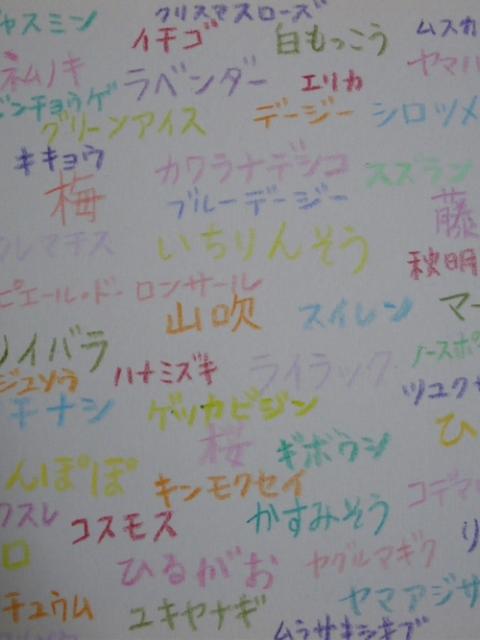 ャスミン クリスマスローズ
イチゴ 白もっこう ムスカ
ネムノキ ラベンダー エリカ ヤマハ
ンチョウゲ デージー シロツメ
グリーンアイス
キキョウ カワラナデシコ スズラン
梅 ブルーデージー 藤
レマチス いちりんそう 秋明
ピエール・ド・ロンサール
山吹 スイレン マー
ノイバラ ノースポ
ジュソウ ハナミズキ ライラック ツユクサ
チナシ ゲッカビジン ひ
桜 ギボウシ
んぽぽ キンモクセイ コデマ
ワスレ コスモス かすみそう リ
ロ ひるがお ヤグルマギク
チュウム ユキヤナギ ヤマアジサ
ムラサキシキブ